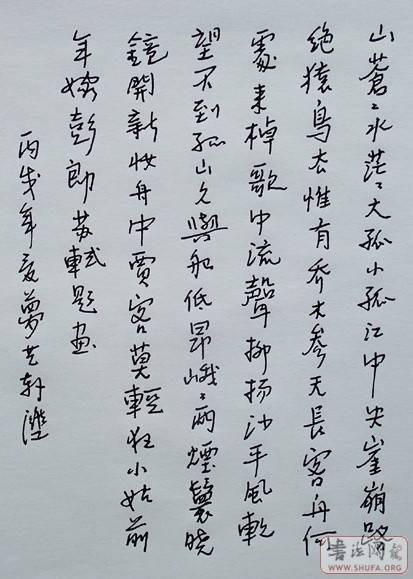 山蒼〻水茫〻大孤小孤江中央崖崩路
絶猿鳥去惟有乔木參天長客舟何
處来棹歌中流聲抑扬沙平風軟
望不到孤山久與船低昂峨〻兩煙鬟曉
鏡開新妝舟中賈客莫輕狂小姑前
年嫁彭郎苏軾題画
丙戌年夏夢艺轩
WWW.SHUFA.ORG